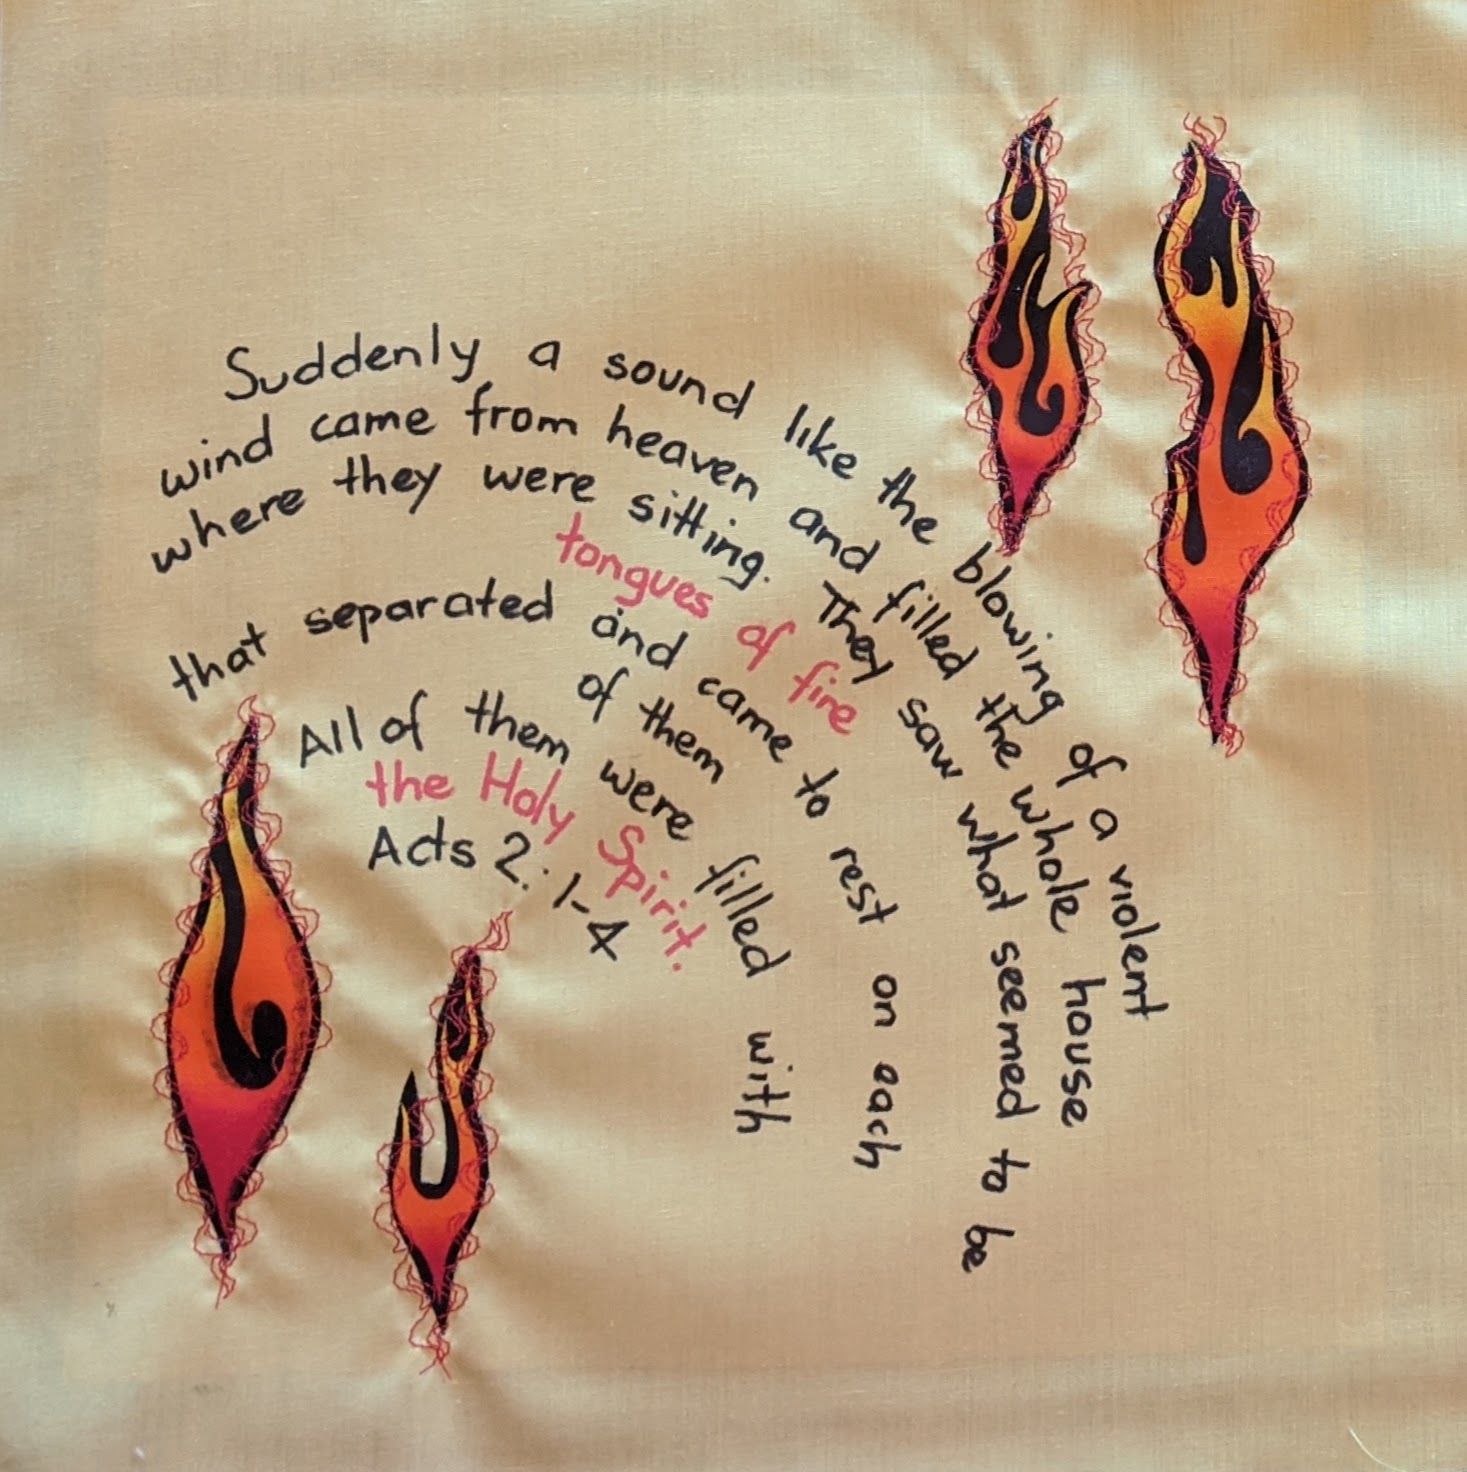 Suddenly a sound like the blowing of a violent
wind came from heaven and filled the whole house
where they were sitting. They saw what seemed to be
tongues of fire
that separated and came to rest on each
of them
All of them were filled with
the Holy Spirit.
Acts 2:1-4